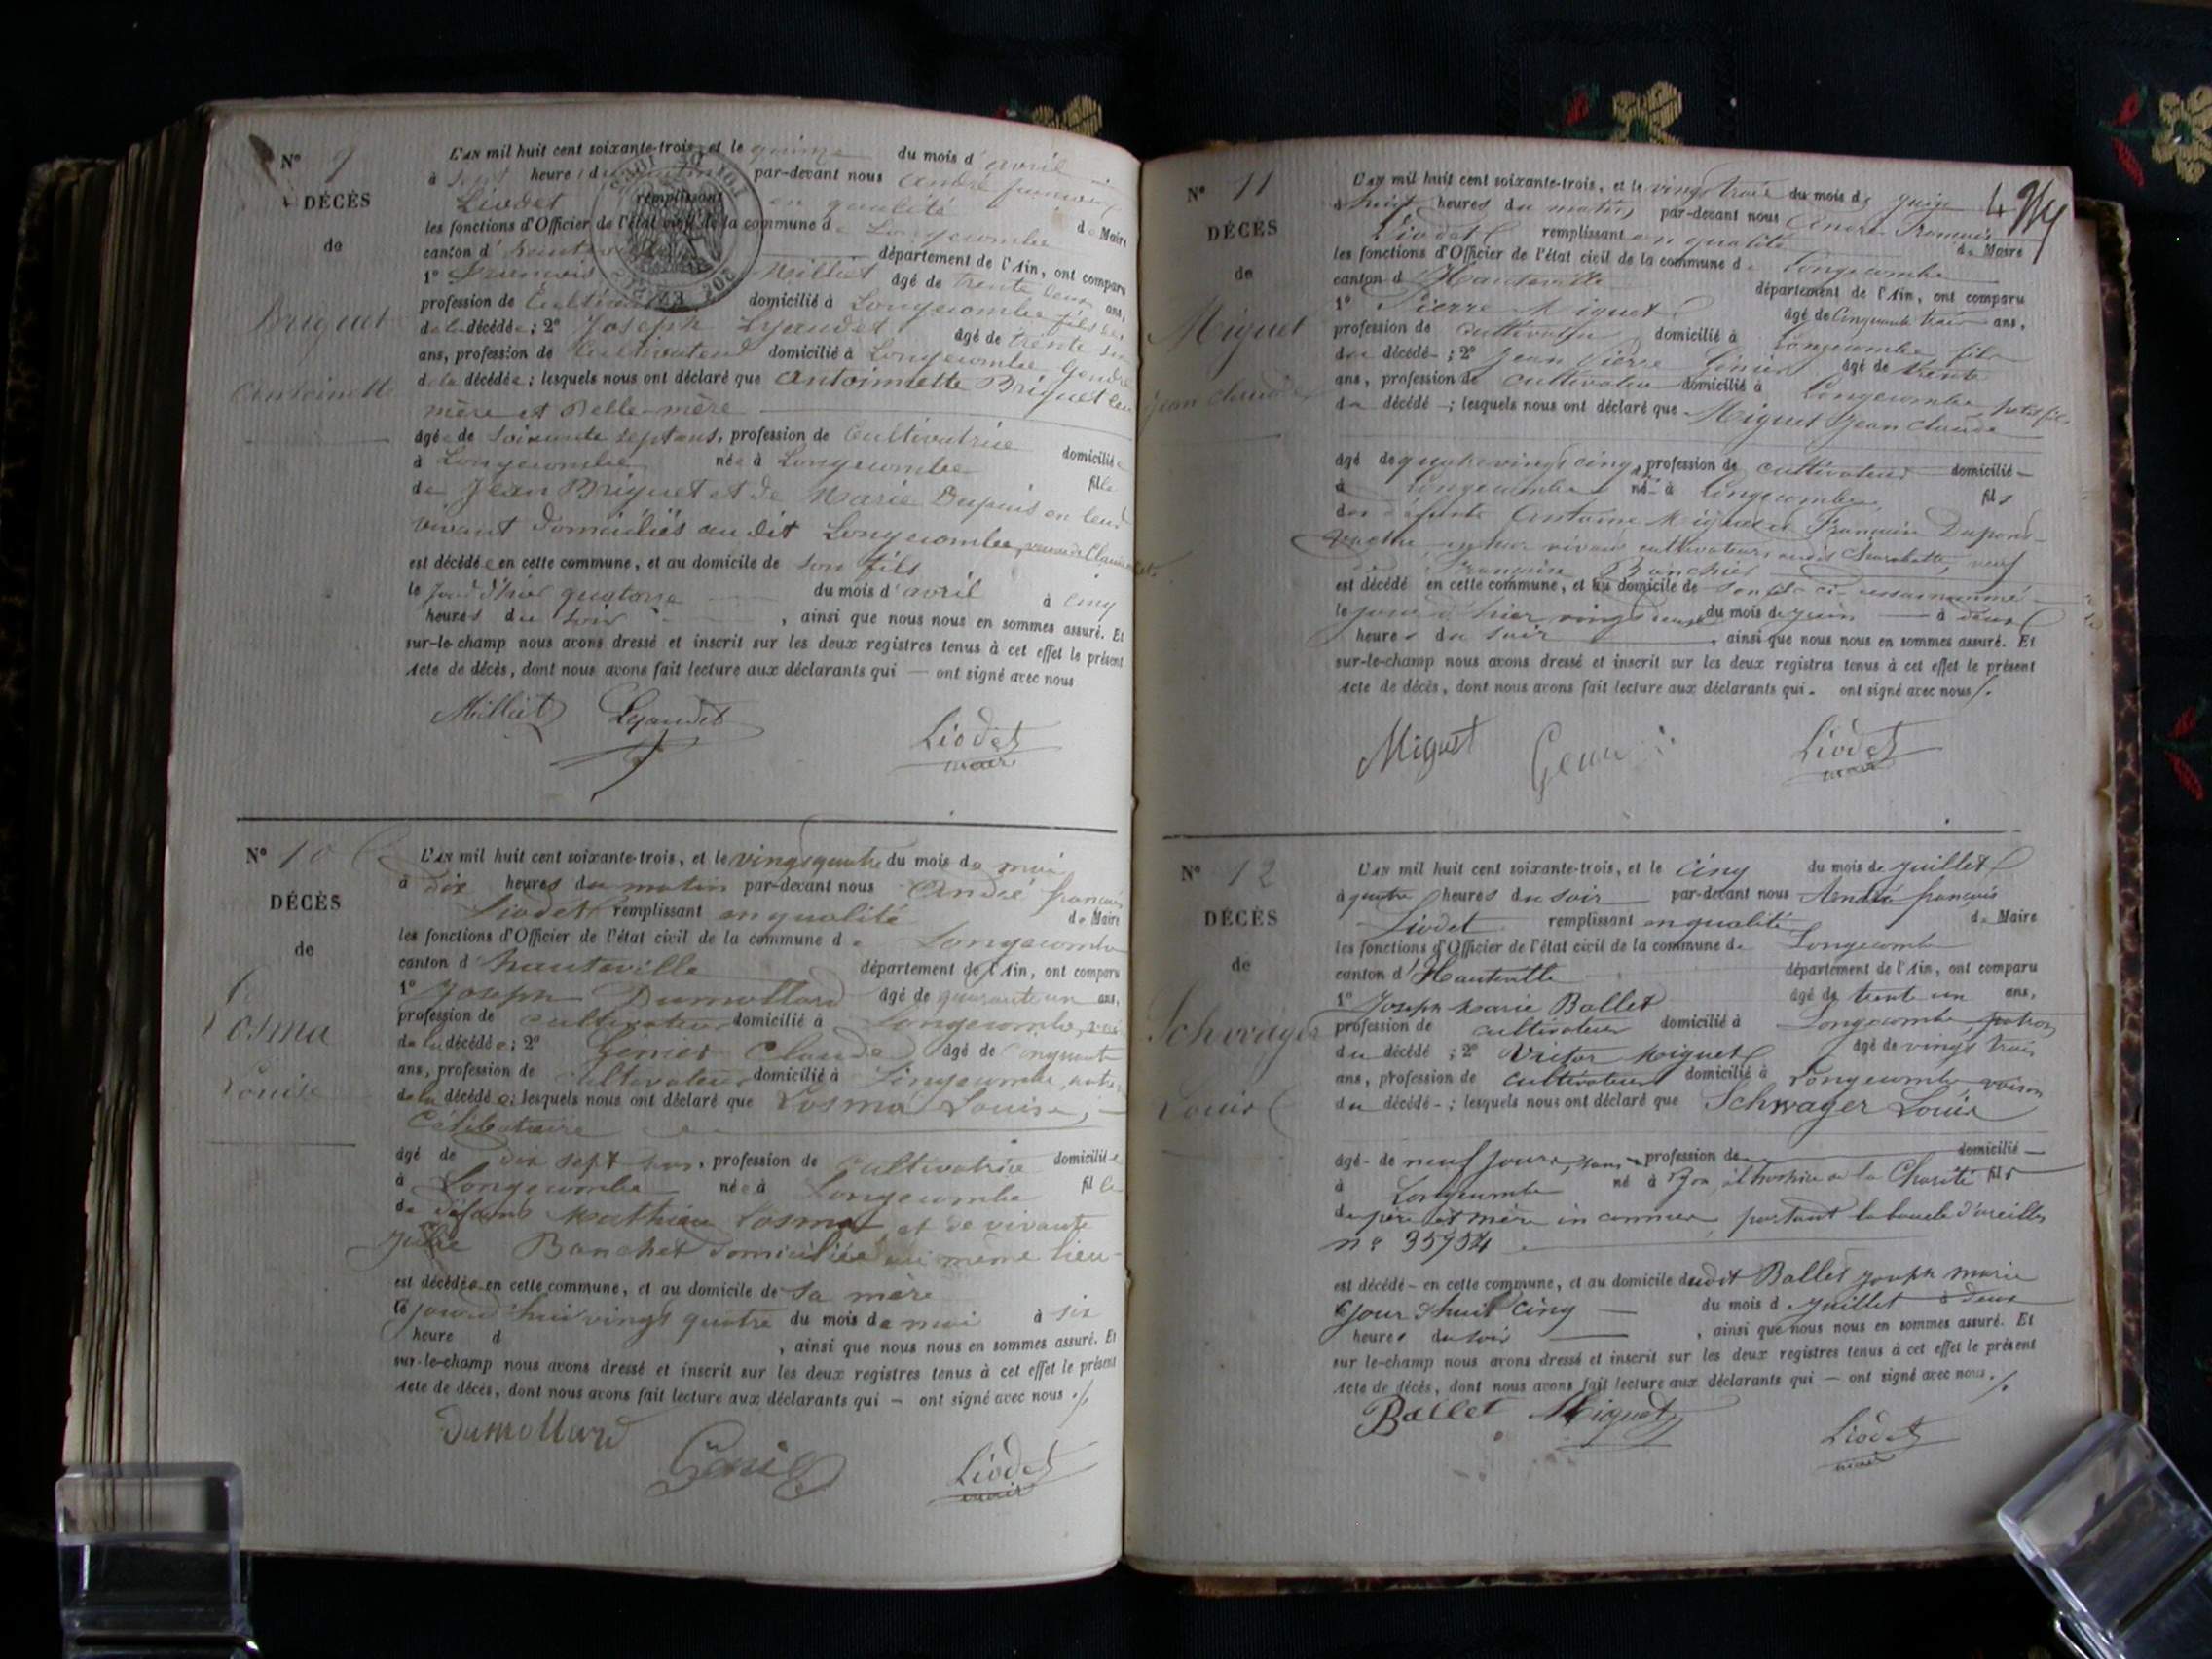 N° 9
DÉCÈS
de
Briguet
Antoinette
L'AN mil huit cent soixante-trois, et le quinze du mois d'avril
à sept heures du matin par-devant nous André françois
Liodet remplissant en qualité de Maire
les fonctions d'Officier de l'état civil de la commune de Longecombe
canton d'hauteville département de l'Ain, ont comparu
1° François Milliet âgé de trente deux ans,
profession de Cultivateur domicilié à Longecombe fils
de la décédée; 2° Joseph Lyaudet âgé de trente
ans, profession de Cultivateur domicilié à Longecombe Gendre
de la décédée; lesquels nous ont déclaré que Antoinnette Briguet leur
mère et Belle-mère
âgée de soixante sept ans, profession de Cultivatrice domiciliée
à Longecombe née à Longecombe fille
de Jean Briguet et de Marie Dupuis en leur
vivant domiciliés au dit Longecombe, veuve de Claude
est décédée en cette commune, et au domicile de son fils
le jour d'hier quatorze du mois d'avril à cinq
heures du soir, ainsi que nous nous en sommes assuré. Et
sur-le-champ nous avons dressé et inscrit sur les deux registres tenus à cet effet le présent
Acte de décès, dont nous avons fait lecture aux déclarants qui — ont signé avec nous
Milliet Lyaudet Liodet
maire
N° 10
DÉCÈS
de
Cosma
Louise
L'AN mil huit cent soixante-trois, et le vingt quatre du mois de mai
à dix heures du matin par-devant nous André françois
Liodet remplissant en qualité de Maire
les fonctions d'Officier de l'état civil de la commune de Longecombe
canton d'hauteville département de l'Ain, ont comparu
1° Joseph Dumollard âgé de quarante un ans,
profession de cultivateur domicilié à Longecombe,
de la décédée; 2° Génier Claude âgé de cinquante
ans, profession de cultivateur domicilié à Longecombe,
de la décédée; lesquels nous ont déclaré que Cosma Louise,
Célibataire
âgé de dix sept ans, profession de Cultivatrice domiciliée
à Longecombe née à Longecombe fille
de défunt Mathieu Cosma et de vivante
Julie Banchet domiciliée au même lieu
est décédée en cette commune, et au domicile de sa mère
le jourd'hui vingt quatre du mois de mai à six
heure d , ainsi que nous nous en sommes assuré. Et
sur-le-champ nous avons dressé et inscrit sur les deux registres tenus à cet effet le présent
Acte de décès, dont nous avons fait lecture aux déclarants qui — ont signé avec nous ./.
Dumollard Génier Liodet
maire
N° 11
DÉCÈS
de
Miguet
Jean Claude
L'AN mil huit cent soixante-trois, et le vingt trois du mois de juin
à huit heures du matin, par-devant nous André François
Liodet remplissant en qualité de Maire
les fonctions d'Officier de l'état civil de la commune de Longecombe
canton d'Hauteville département de l'Ain, ont comparu
1° Pierre Miguet âgé de Cinquante trois ans,
profession de cultivateur domicilié à Longecombe fils
du décédé; 2° Jean Pierre Génier âgé de trente
ans, profession de cultivateur domicilié à Longecombe, petit fils
du décédé; lesquels nous ont déclaré que Miguet Jean Claude
âgé de quatre vingt cinq ans, profession de cultivateur domicilié
à Longecombe né à Longecombe fils
des défunts Antoine Miguet et Françoise
en leur vivant cultivateurs audit veuf
de Françoise
est décédé en cette commune, et au domicile de son fils ci-dessus nommé
le jour d'hier vingt deux du mois de juin à deux
heures du soir, ainsi que nous nous en sommes assuré. Et
sur-le-champ nous avons dressé et inscrit sur les deux registres tenus à cet effet le présent
Acte de décès, dont nous avons fait lecture aux déclarants qui — ont signé avec nous ./.
Miguet Liodet
maire
N° 12
DÉCÈS
de
Schwager
Louis
L'AN mil huit cent soixante-trois, et le cinq du mois de juillet
à quatre heures du soir par-devant nous André françois
Liodet remplissant en qualité de Maire
les fonctions d'Officier de l'état civil de la commune de Longecombe
canton d'Hauteville département de l'Ain, ont comparu
1° Joseph Marie Ballet âgé de trente un ans,
profession de cultivateur domicilié à Longecombe, patron
du décédé; 2° Victor Miguet âgé de vingt trois
ans, profession de cultivateur domicilié à Longecombe voisin
du décédé; lesquels nous ont déclaré que Schwager Louis
âgé de neuf jours, sans profession de domicilié
à Longecombe né à Lyon, à l'hospice de la Charité fils
de père et mère inconnus, portant la boucle d'oreilles
n° 35754
est décédé en cette commune, et au domicile dudit Ballet Joseph Marie
le jourd'hui cinq du mois de juillet à deux
heures du soir, ainsi que nous nous en sommes assuré. Et
sur le-champ nous avons dressé et inscrit sur les deux registres tenus à cet effet le présent
Acte de décès, dont nous avons fait lecture aux déclarants qui — ont signé avec nous ./.
Ballet Miguet Liodet
maire